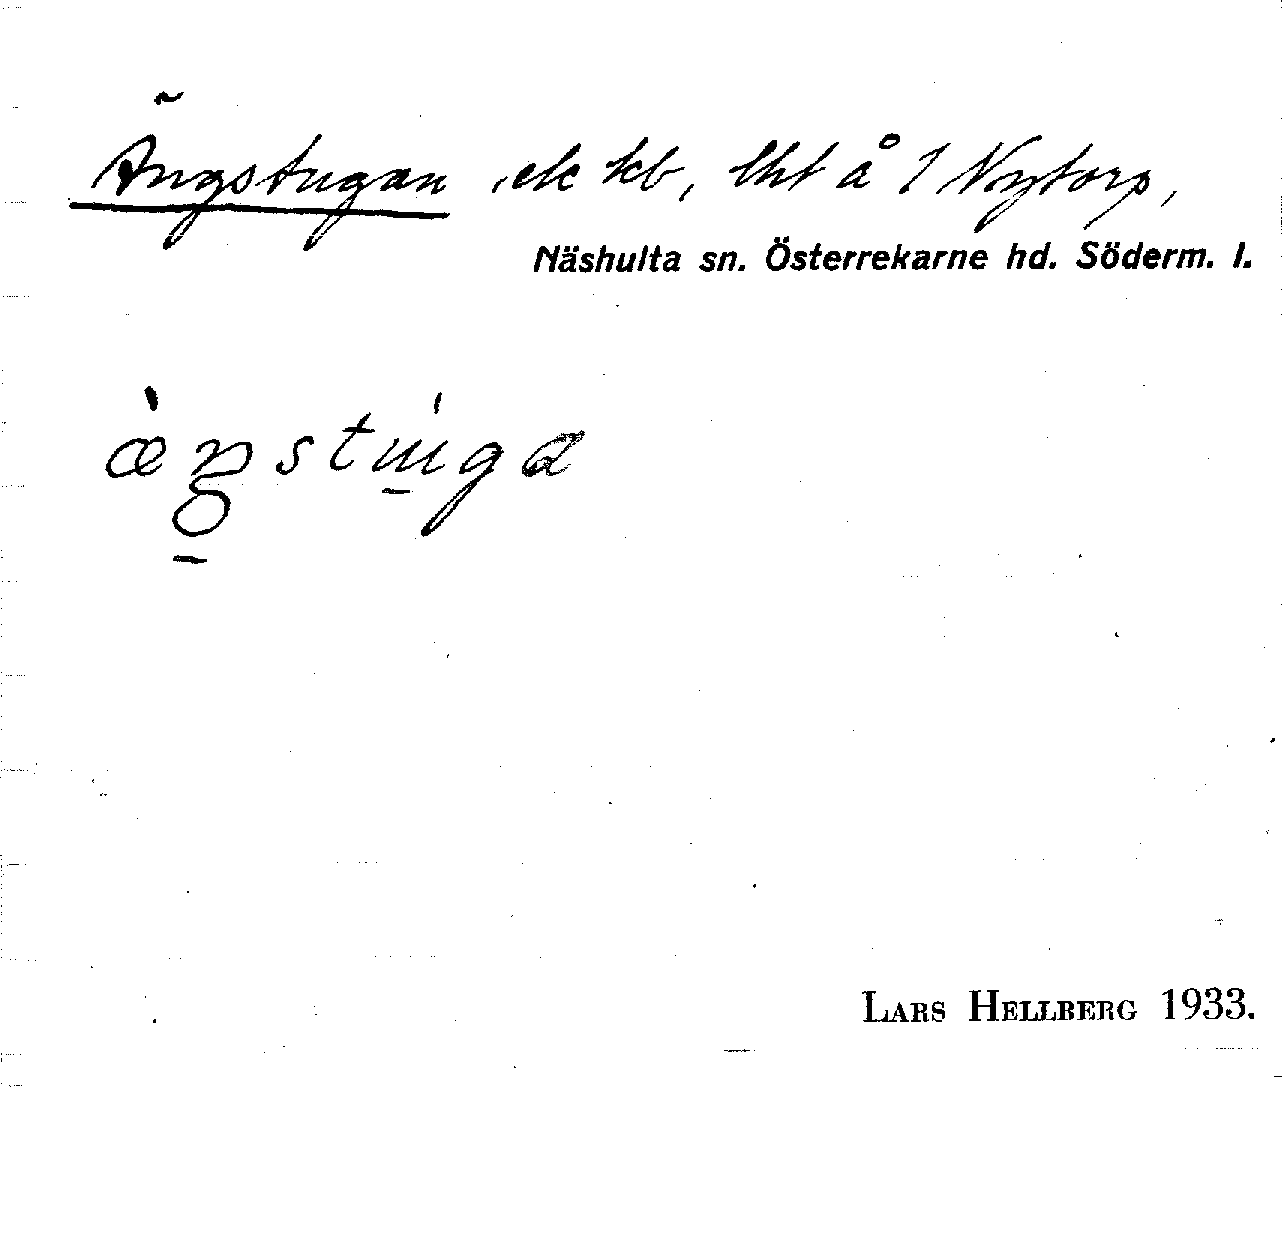 Ängstugan, ek kb, lht å 1 Nytorp,
Näshulta sn. Österrekarne hd. Söderm. l.
LARS HELLBERG 1933.